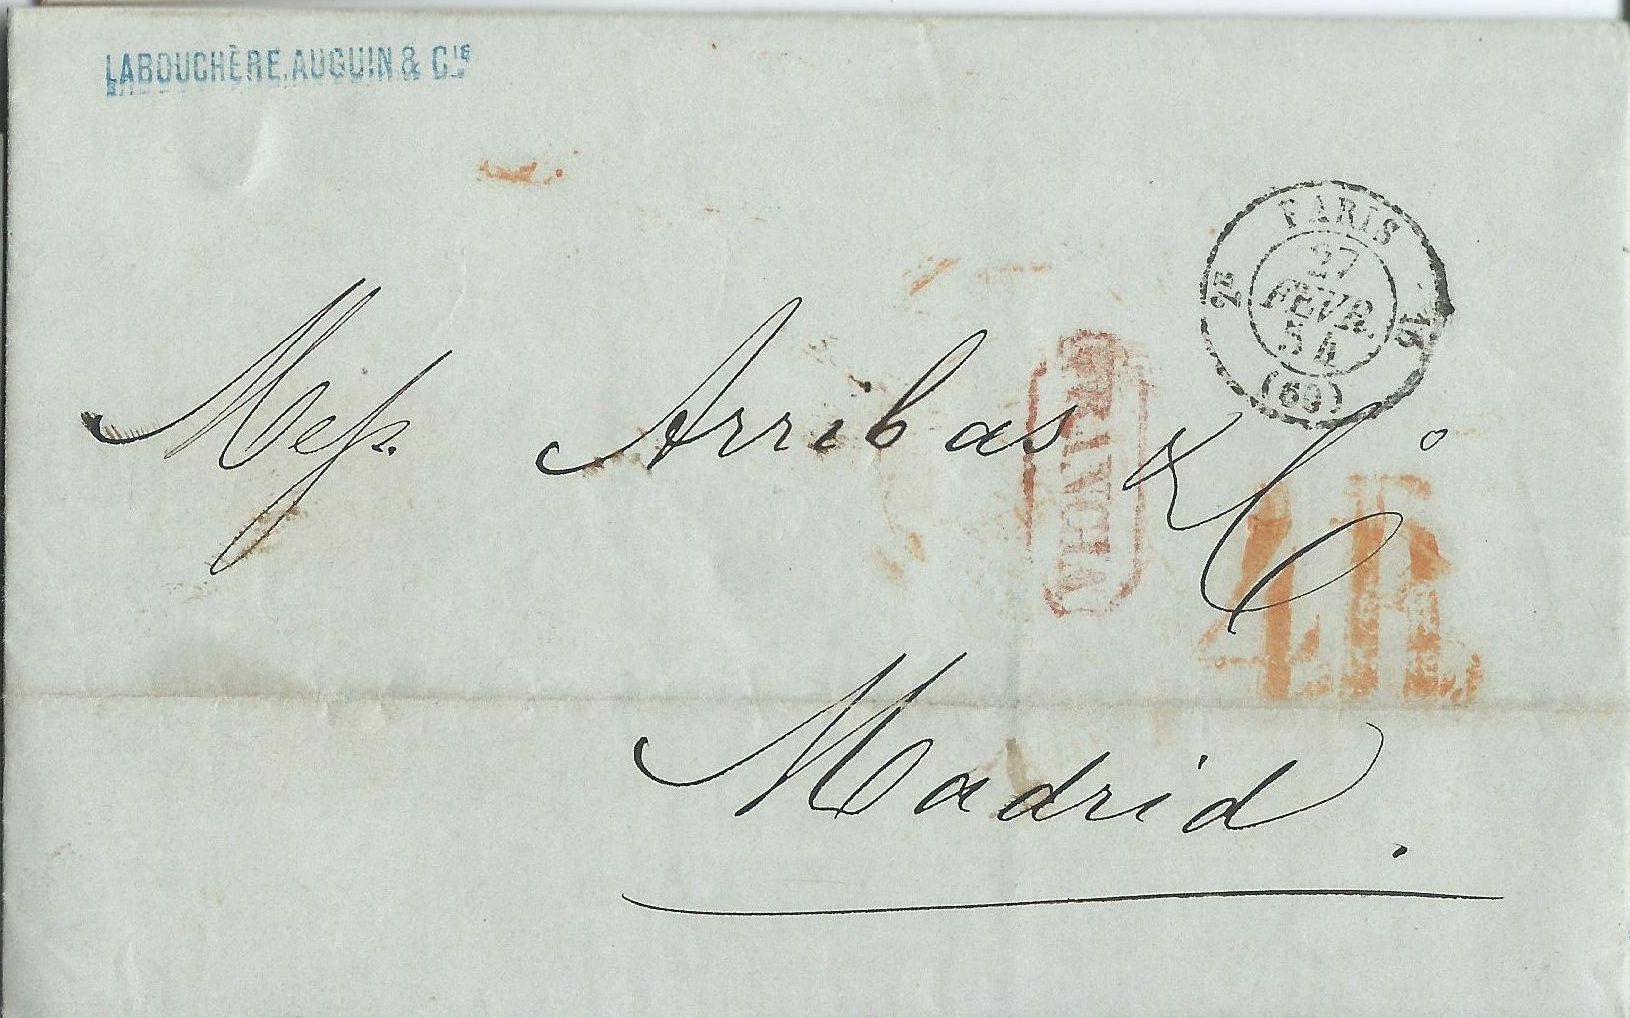 LABOUCHÈRE, AUGUIN & Cie
PARIS
27
FEVR.
54
(60)
2E
2E
FRANCIA
Mess. Arribas & Co
4R
Madrid.